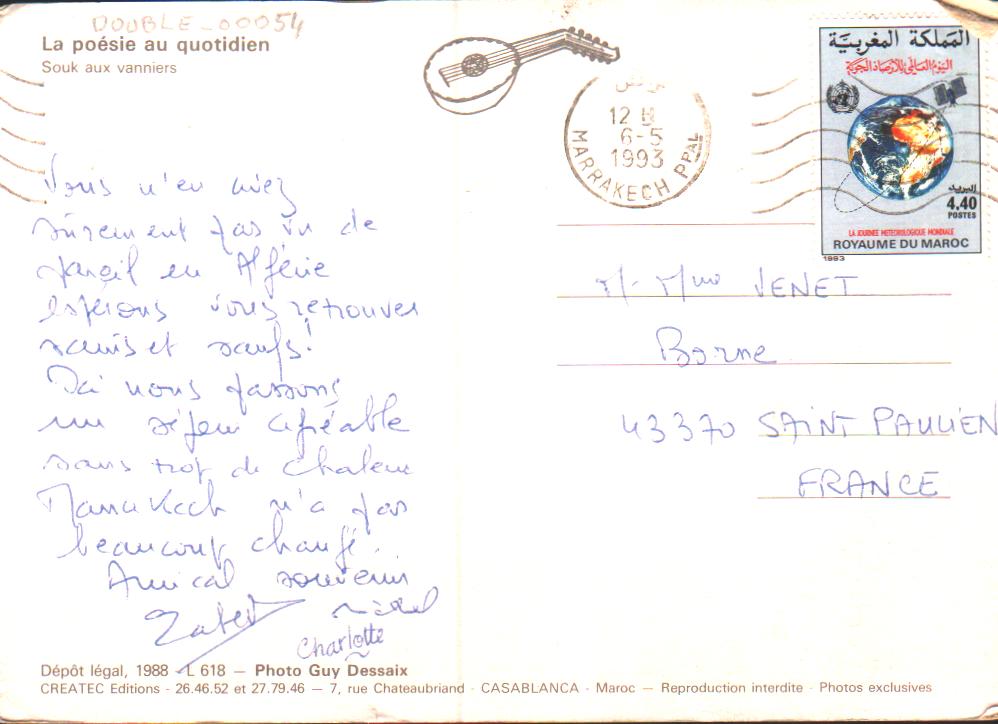 DOUBLE_00054
La poésie au quotidien
Souk aux vanniers
Vous n'en aviez
sûrement pas vu de
pareil en Algérie
espérons vous retrouver
sains et saufs!
Ici nous passons
un séjour agréable
sans trop de chaleur
Marrakech n'a pas
beaucoup changé...
Amical souvenir
Charlotte
Dépôt légal, 1988 - L 618 — Photo Guy Dessaix
CREATEC Editions · 26.46.52 et 27.79.46 — 7, rue Chateaubriand · CASABLANCA · Maroc — Reproduction interdite · Photos exclusives
12 H
6-5
1993
MARRAKECH PPAL
المملكة المغربية
اليوم العالمي للأرصاد الجوية
البريد
4.40
POSTES
LA JOURNEE METEOROLOGIQUE MONDIALE
ROYAUME DU MAROC
1993
M. Mme VENET
Borne
43370 SAINT PAULIEN
FRANCE